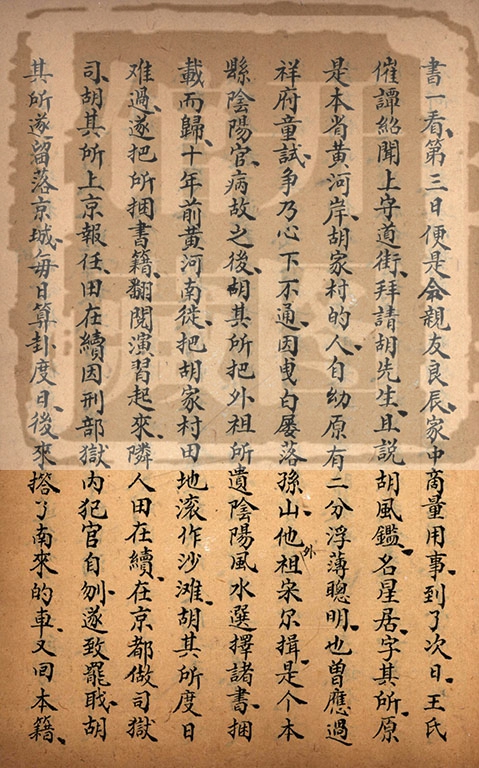 書一看、第三日便是會親友良辰、家中商量用事、到了次日、王氏
催譚紹聞上守道街、拜請胡先生、且說胡風鑑、名星居、字其所、原
是本省黃河岸、胡家村的人、自幼原有二分浮薄聰明、也曾應過
祥府童試、爭乃心下不通、因曳白屢落孫山、他外祖宋尔揖、是个本
縣陰陽官、病故之後、胡其所把外祖所遺陰陽風水選擇諸書、捆
載而歸、十年前黃河南徙、把胡家村田地滾作沙灘、胡其所度日
难過、遂把所捆書籍、翻閱演習起來、隣人田在續、在京都做司獄
司、胡其所上京報任、田在續因刑部獄內犯官自刎、遂致罷職、胡
其所遂留落京城、每日算卦度日、後來搭了南來的車、又回本籍、